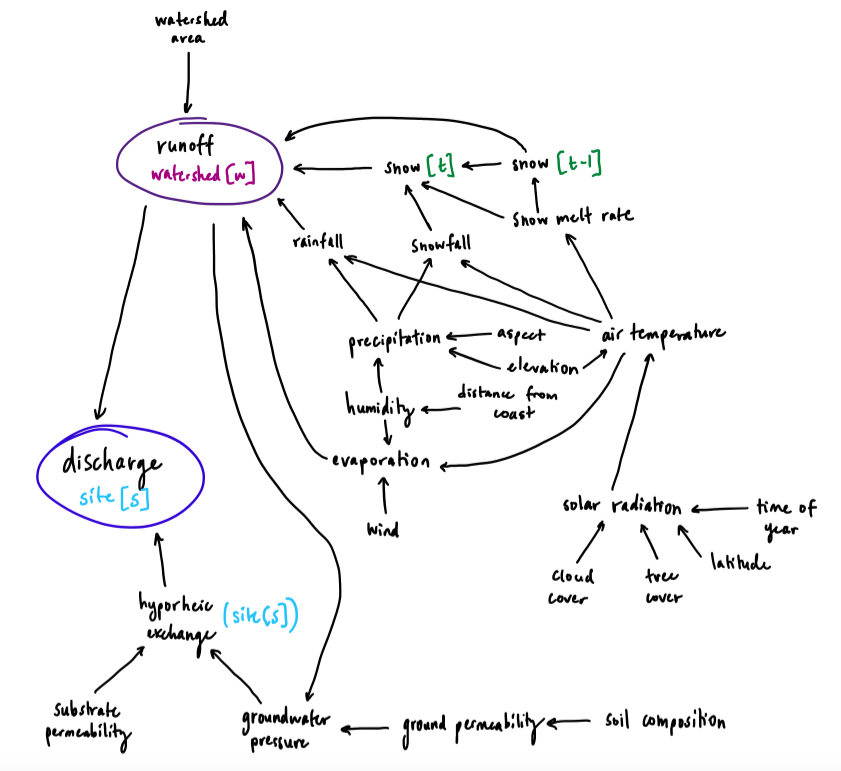 watershed
area
runoff
watershed [w]
snow [t]
snow [t-1]
snow melt rate
rainfall
snowfall
precipitation
aspect
air temperature
elevation
humidity
distance from
coast
evaporation
wind
discharge
site [s]
solar radiation
time of
year
latitude
cloud
cover
tree
cover
hyporheic
exchange
(site[s])
substrate
permeability
groundwater
pressure
ground permeability
soil composition